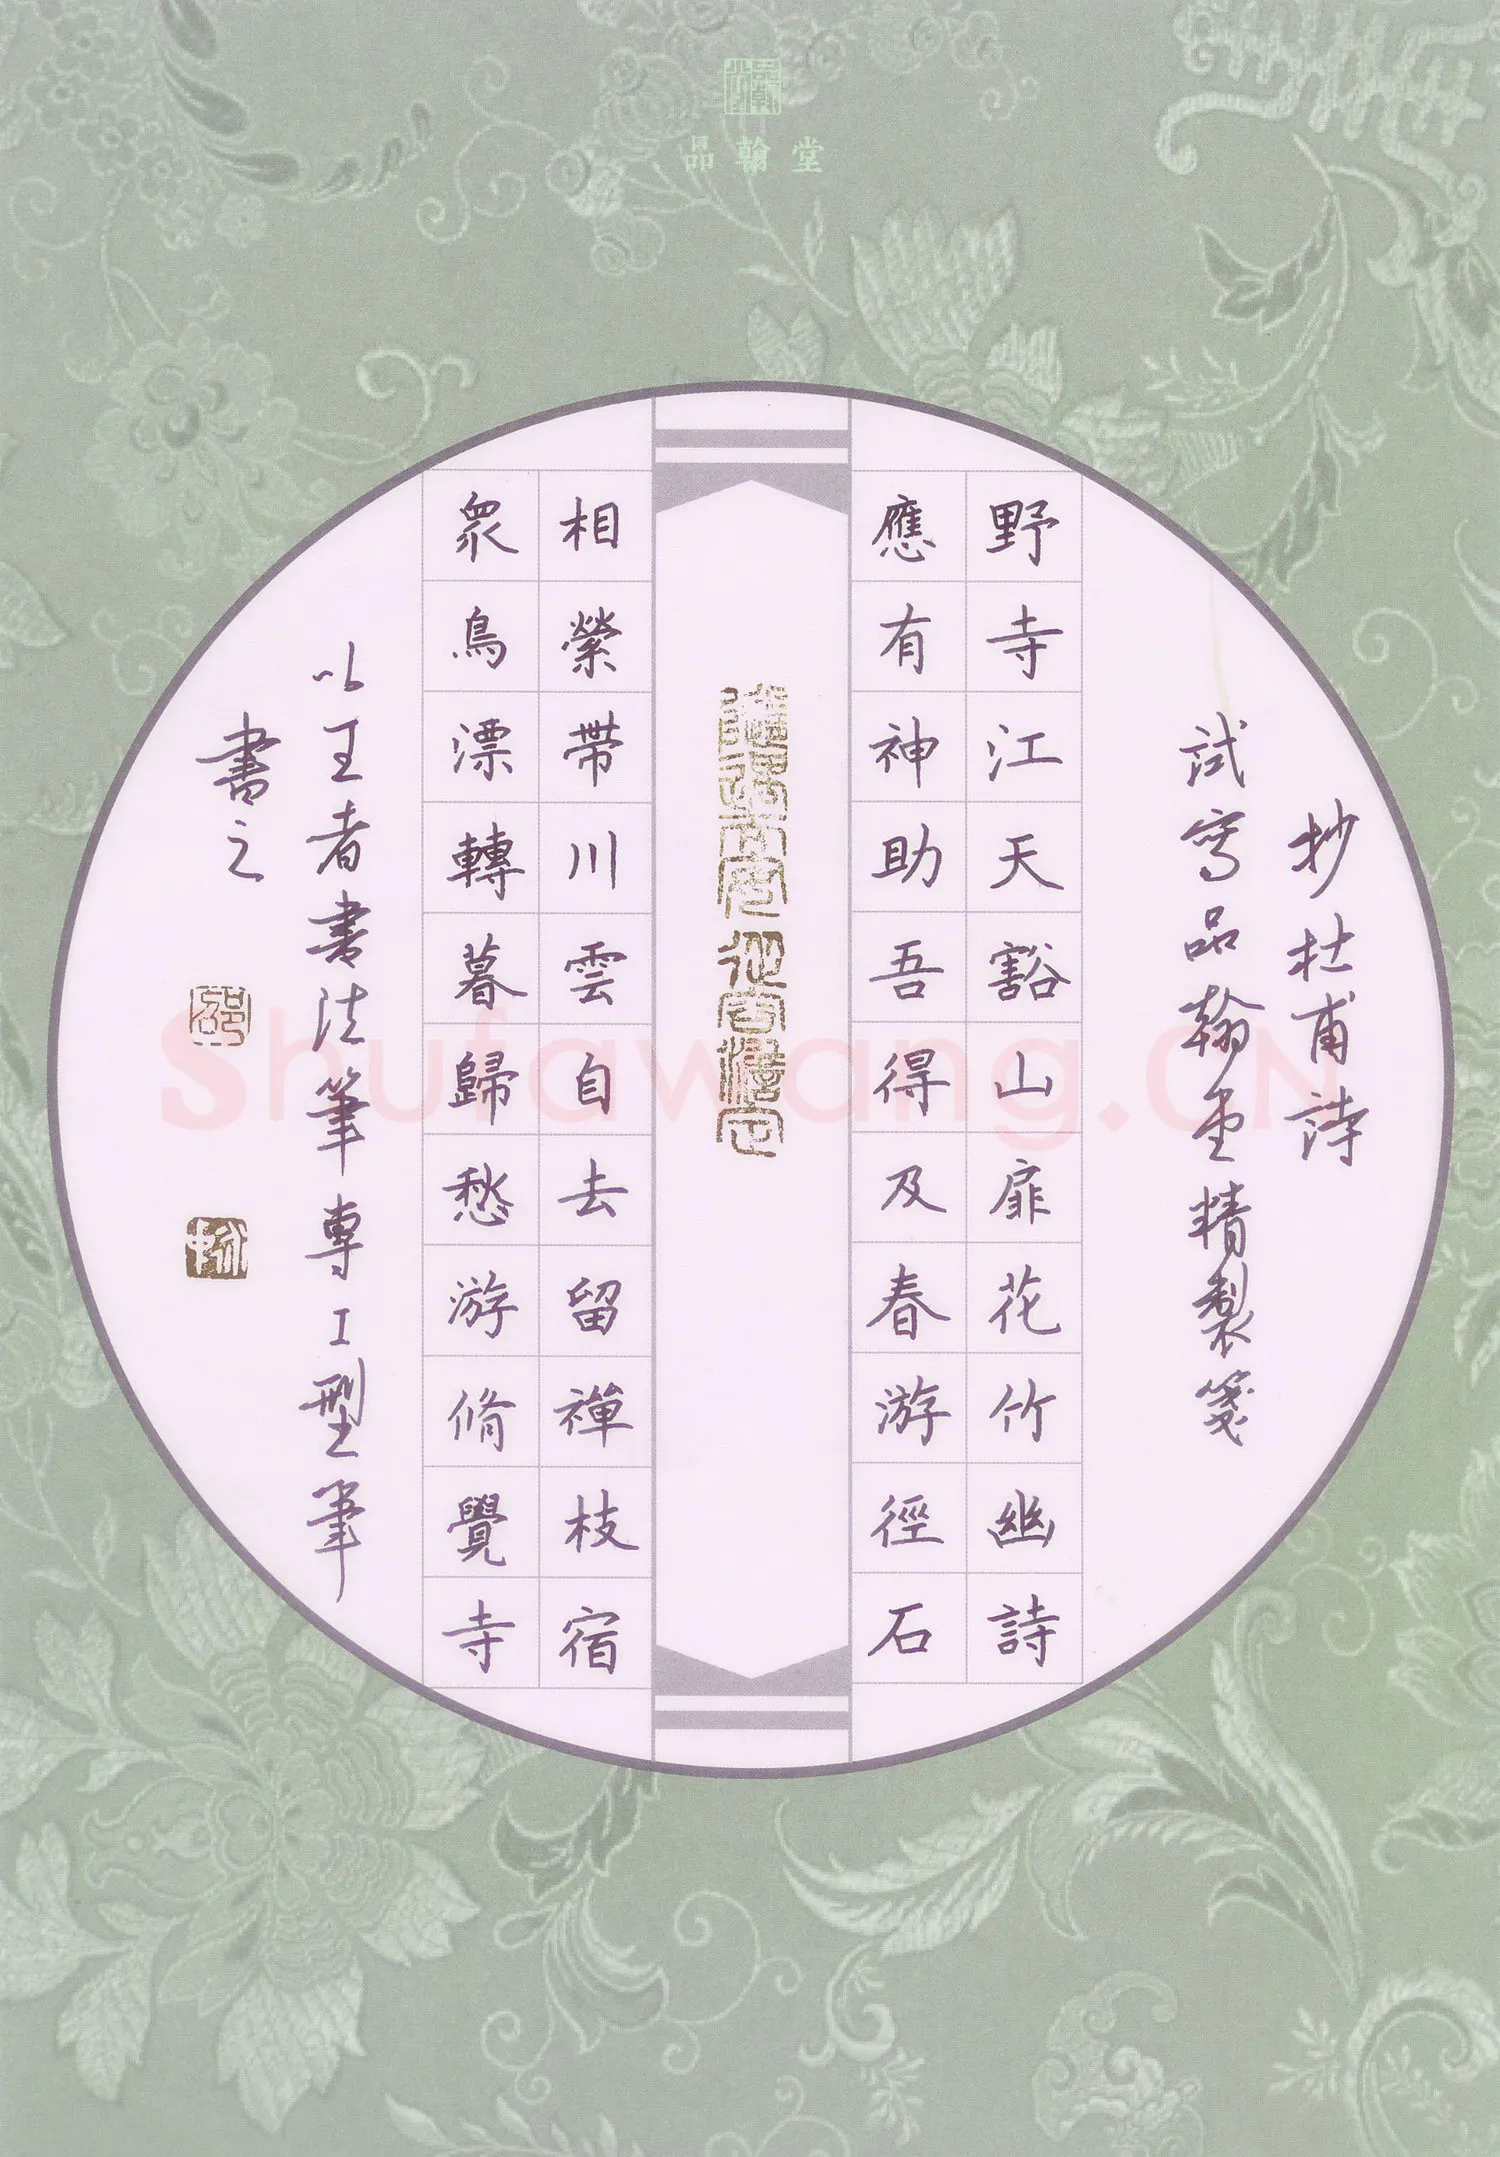 品翰堂
抄杜甫詩
試寫品翰堂精製箋
野寺江天豁山扉花竹幽詩
應有神助吾得及春游徑石
相縈帶川雲自去留禪枝宿
眾鳥漂轉暮歸愁游脩覺寺
以王者書法筆專工型筆
書之
Shufawang.CN